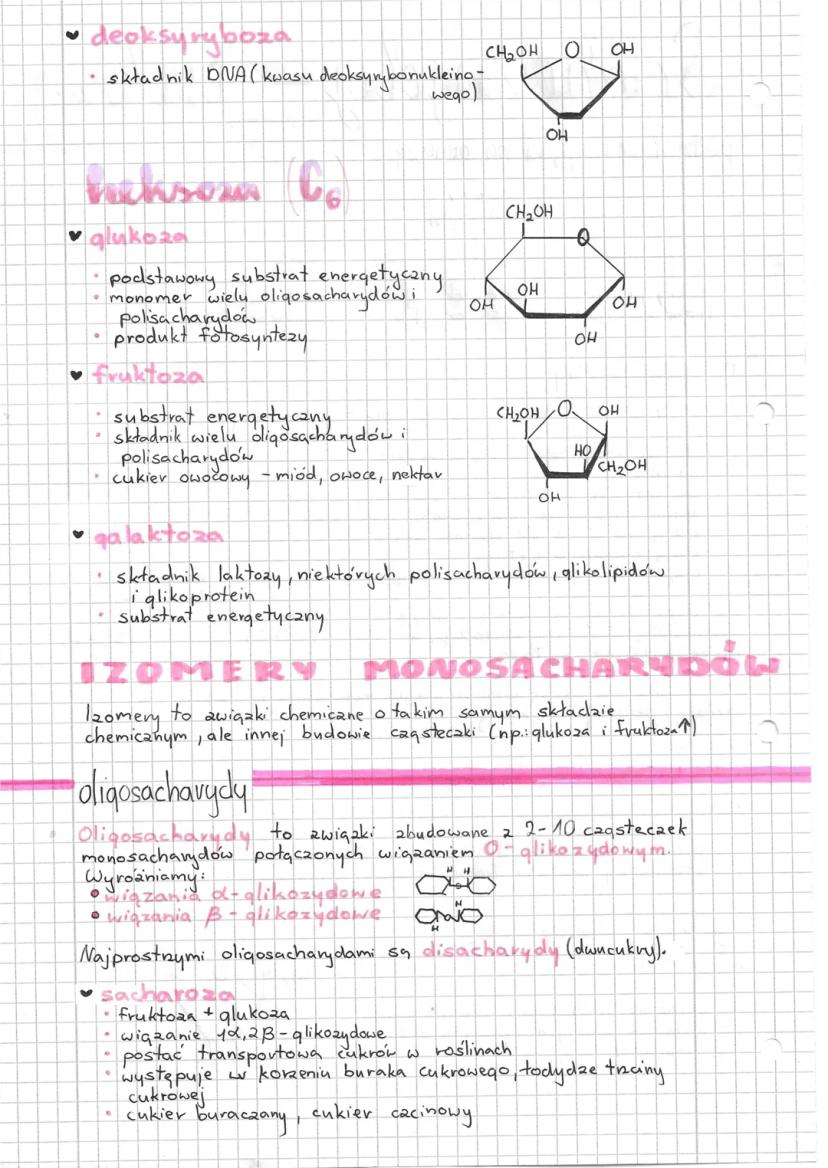 deoksyryboza
• składnik DNA (kwasu deoksyrybonukleino-
wego)
CH₂OH O OH
OH
heksozy (C₆)
glukoza
• podstawowy substrat energetyczny
• monomer wielu oligosacharydów i
polisacharydów
• produkt fotosyntezy
CH₂OH
O
OH OH OH
OH
fruktoza
• substrat energetyczny
• składnik wielu oligosacharydów i
polisacharydów
• cukier owocowy – miód, owoce, nektar
CH₂OH O OH
HO
CH₂OH
OH
galaktoza
• składnik laktozy, niektórych polisacharydów, glikolipidów
i glikoprotein
• substrat energetyczny
IZOMERY MONOSACHARYDÓW
Izomery to związki chemiczne o takim samym składzie
chemicznym, ale innej budowie cząsteczki (np.: glukoza i fruktoza↑)
oligosacharydy
Oligosacharydy to związki zbudowane z 2-10 cząsteczek
monosacharydów połączonych wiązaniem O-glikozydowym.
Wyróżniamy:
• wiązania α-glikozydowe
H H
O
• wiązania β-glikozydowe
H
H
Najprostrzymi oligosacharydami są disacharydy (dwucukry).
sacharoza
• fruktoza + glukoza
• wiązanie 1α,2β-glikozydowe
• postać transportowa cukrów w roślinach
• występuje w korzeniu buraka cukrowego, łodydze trzciny
cukrowej
• cukier buraczany, cukier czcinowy